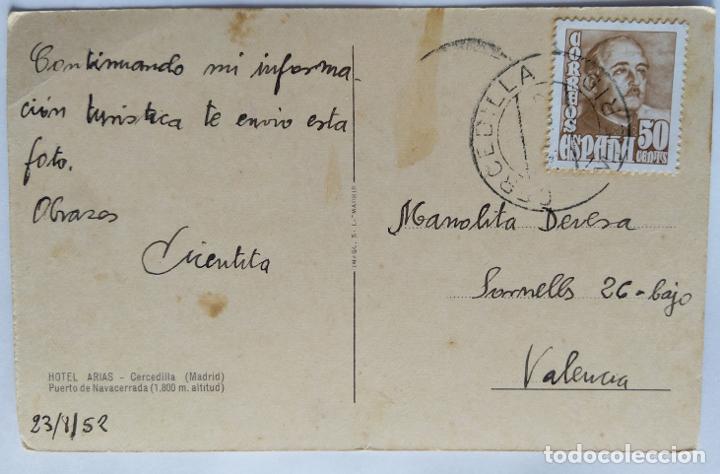 Continuando mi informa
ción turistica te envio esta
foto.
Abrazos
Vicentita
HOTEL ARIAS - Cercedilla (Madrid)
Puerto de Navacerrada (1,800 m. altitud)
23/8/52
CORREOS
ESPAÑA
50
CENTS
CERCEDILLA
Manolita Devesa
Sornells 26-bajo
Valencia
todocoleccion